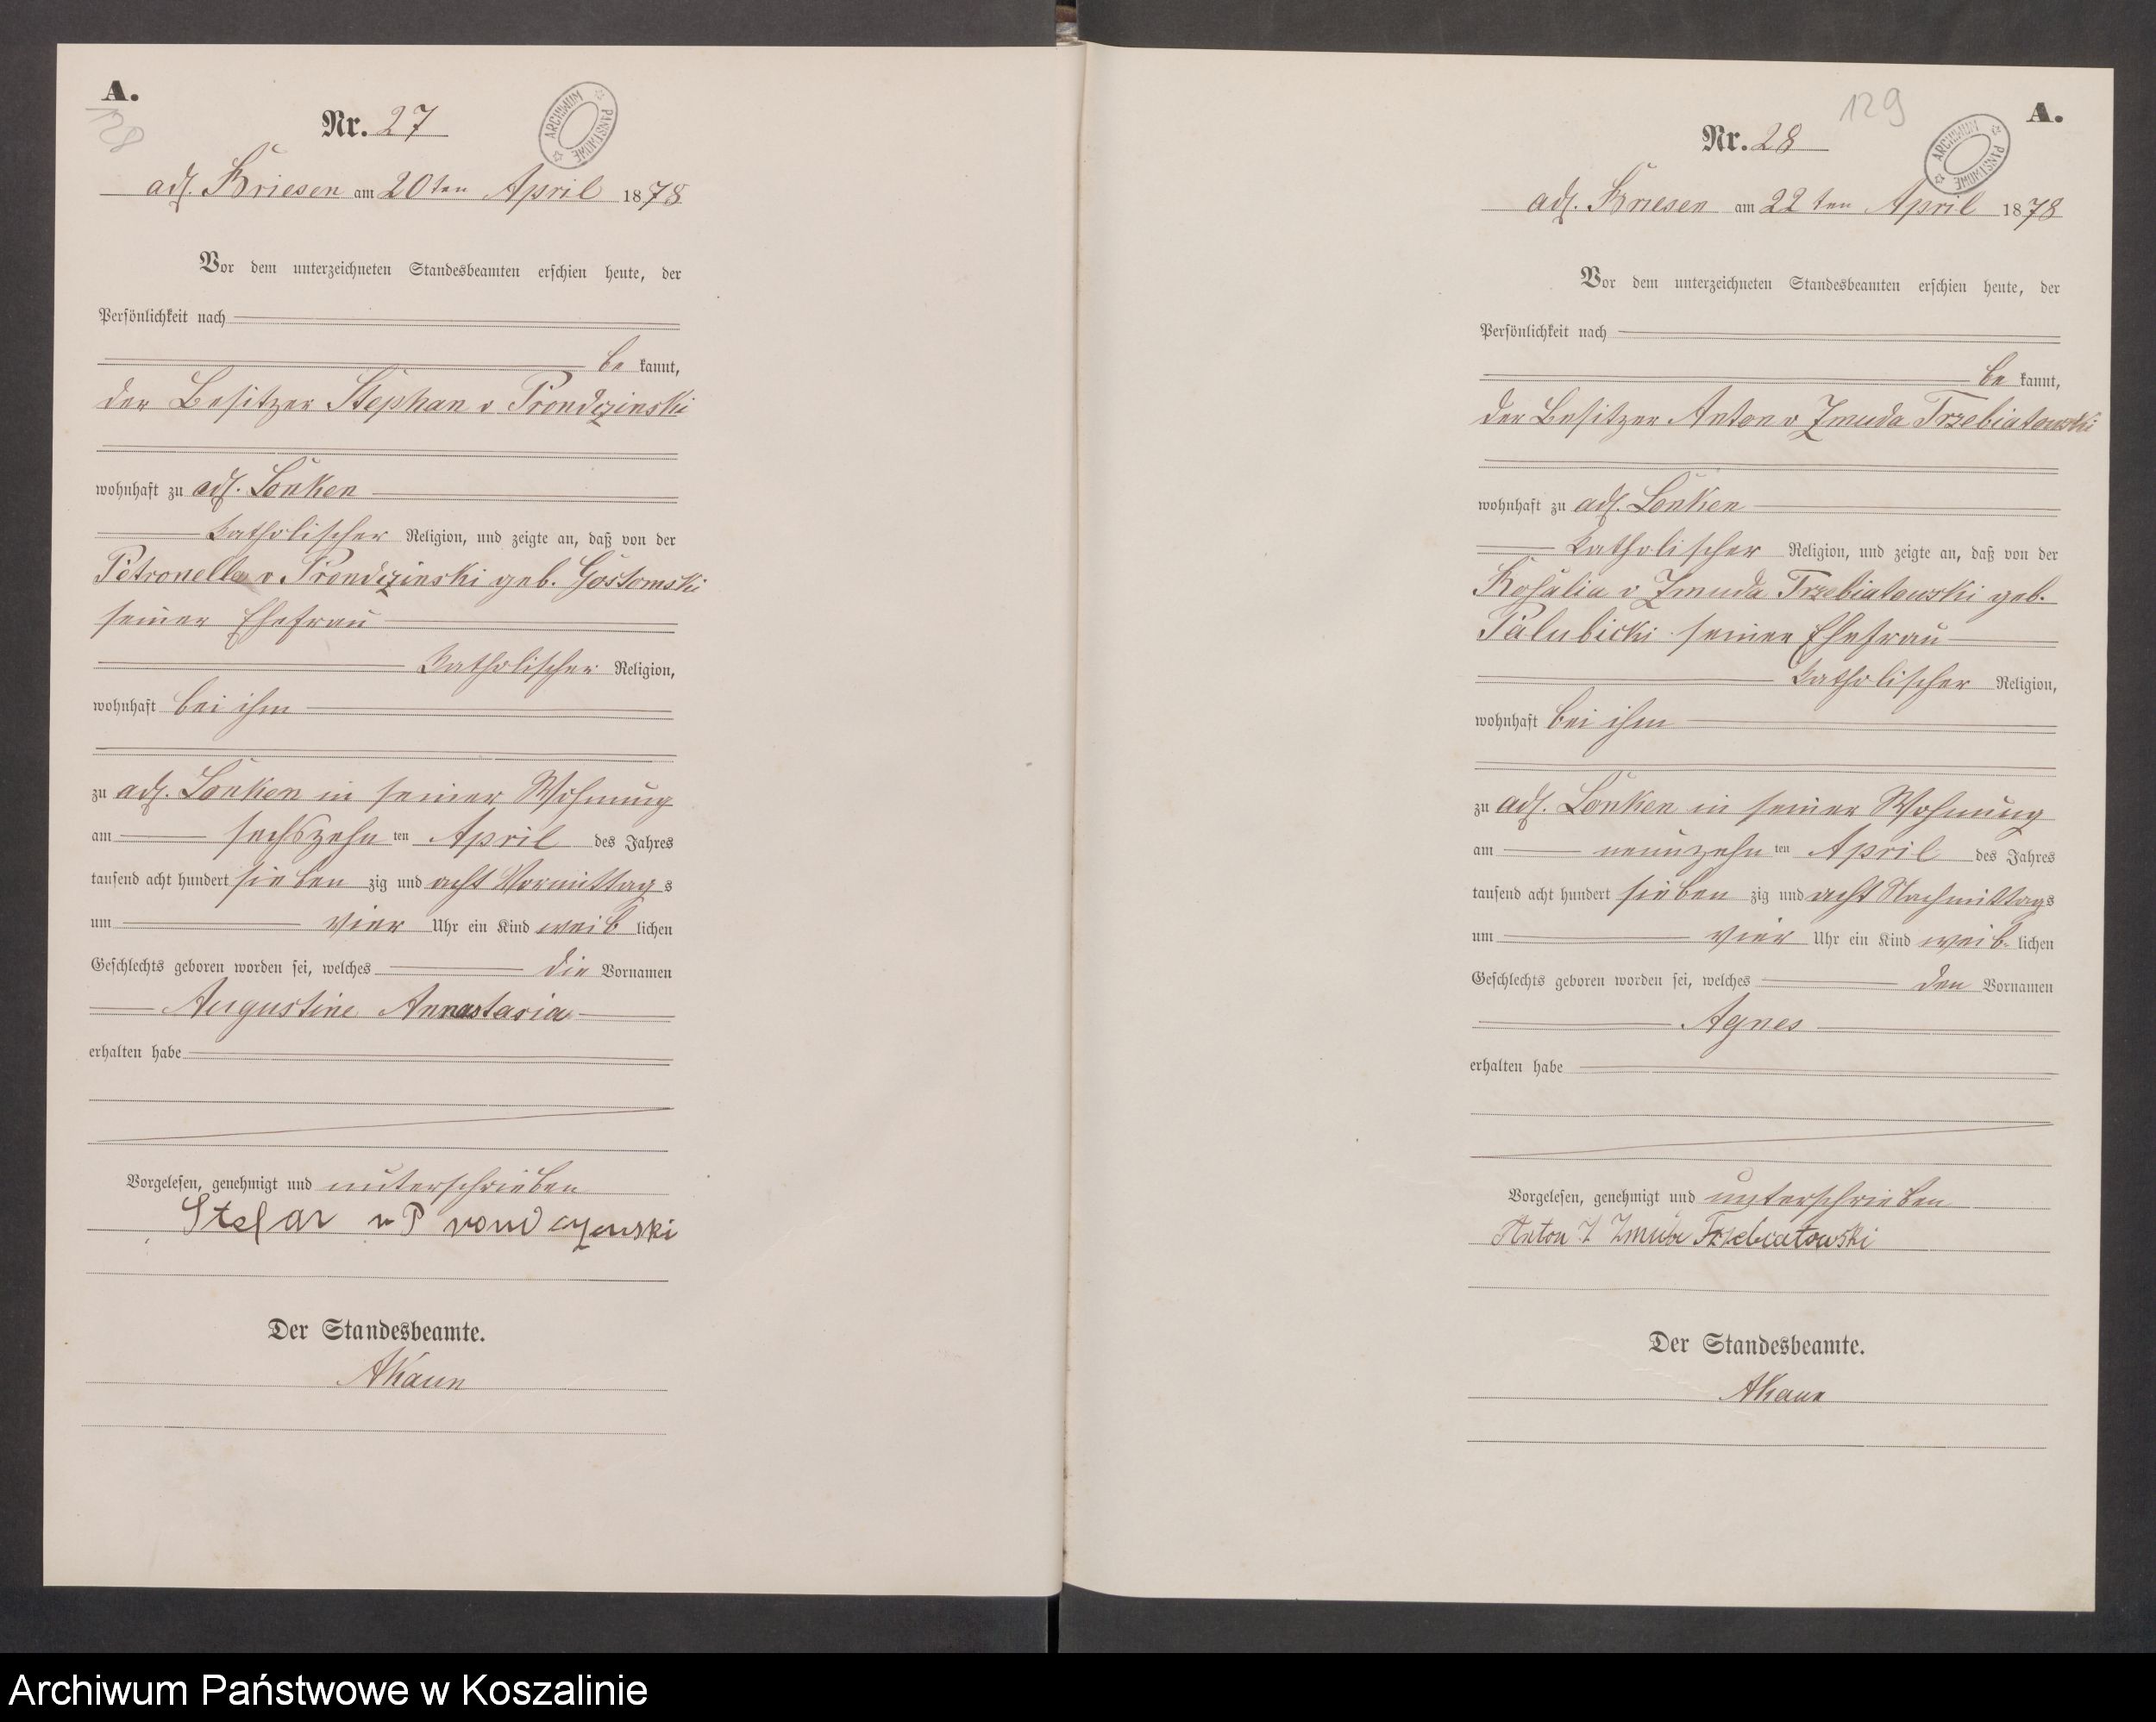 A.
128
Nr. 27
ARCHIWUM PAŃSTWOWE
adl. Briesen am 20ten April 1878
Vor dem unterzeichneten Standesbeamten erschien heute, der
Persönlichkeit nach
be kannt,
der Besitzer Stephan v Prondzinski
wohnhaft zu adl. Lonken
katholischer Religion, und zeigte an, daß von der
Petronella v Prondzinski geb. Gostomski
seiner Ehefrau
katholischer Religion,
wohnhaft bei ihm
zu adl. Lonken in seiner Wohnung
am sechszehn ten April des Jahres
tausend acht hundert sieben zig und acht Vormittag s
um vier Uhr ein Kind weib lichen
Geschlechts geboren worden sei, welches die Vornamen
Augustine Annastasia
erhalten habe
Vorgelesen, genehmigt und unterschrieben
Stefan v P
Der Standesbeamte.
AKaun
129
A.
Nr. 28
ARCHIWUM PAŃSTWOWE
adl. Briesen am 22ten April 1878
Vor dem unterzeichneten Standesbeamten erschien heute, der
Persönlichkeit nach
be kannt,
der Besitzer Anton v Zmuda Trzebiatowski
wohnhaft zu adl. Lonken
katholischer Religion, und zeigte an, daß von der
Rosalia v Zmuda Trzebiatowski geb.
Palubicki seiner Ehefrau
katholischer Religion,
wohnhaft bei ihm
zu adl. Lonken in seiner Wohnung
am neunzehn ten April des Jahres
tausend acht hundert sieben zig und acht Nachmittags
um vier Uhr ein Kind weib- lichen
Geschlechts geboren worden sei, welches den Vornamen
Agnes
erhalten habe
Vorgelesen, genehmigt und unterschrieben
Anton Trzebiatowski
Der Standesbeamte.
AKaun
Archiwum Państwowe w Koszalinie